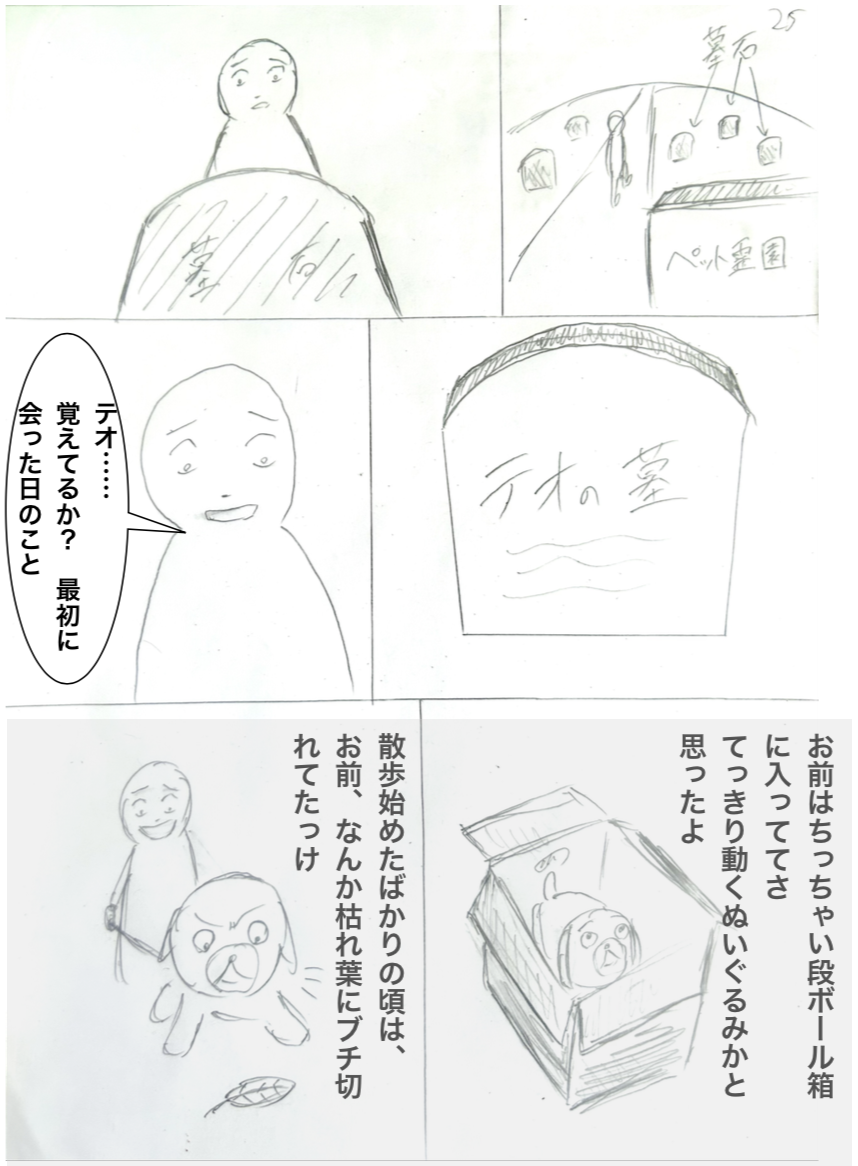 25
墓石
ペット霊園
墓石
テオの墓
テオ……
覚えてるか？　最初に
会った日のこと
お前はちっちゃい段ボール箱
に入っててさ
てっきり動くぬいぐるみかと
思ったよ
散歩始めたばかりの頃は、
お前、なんか枯れ葉にブチ切
れてたっけ